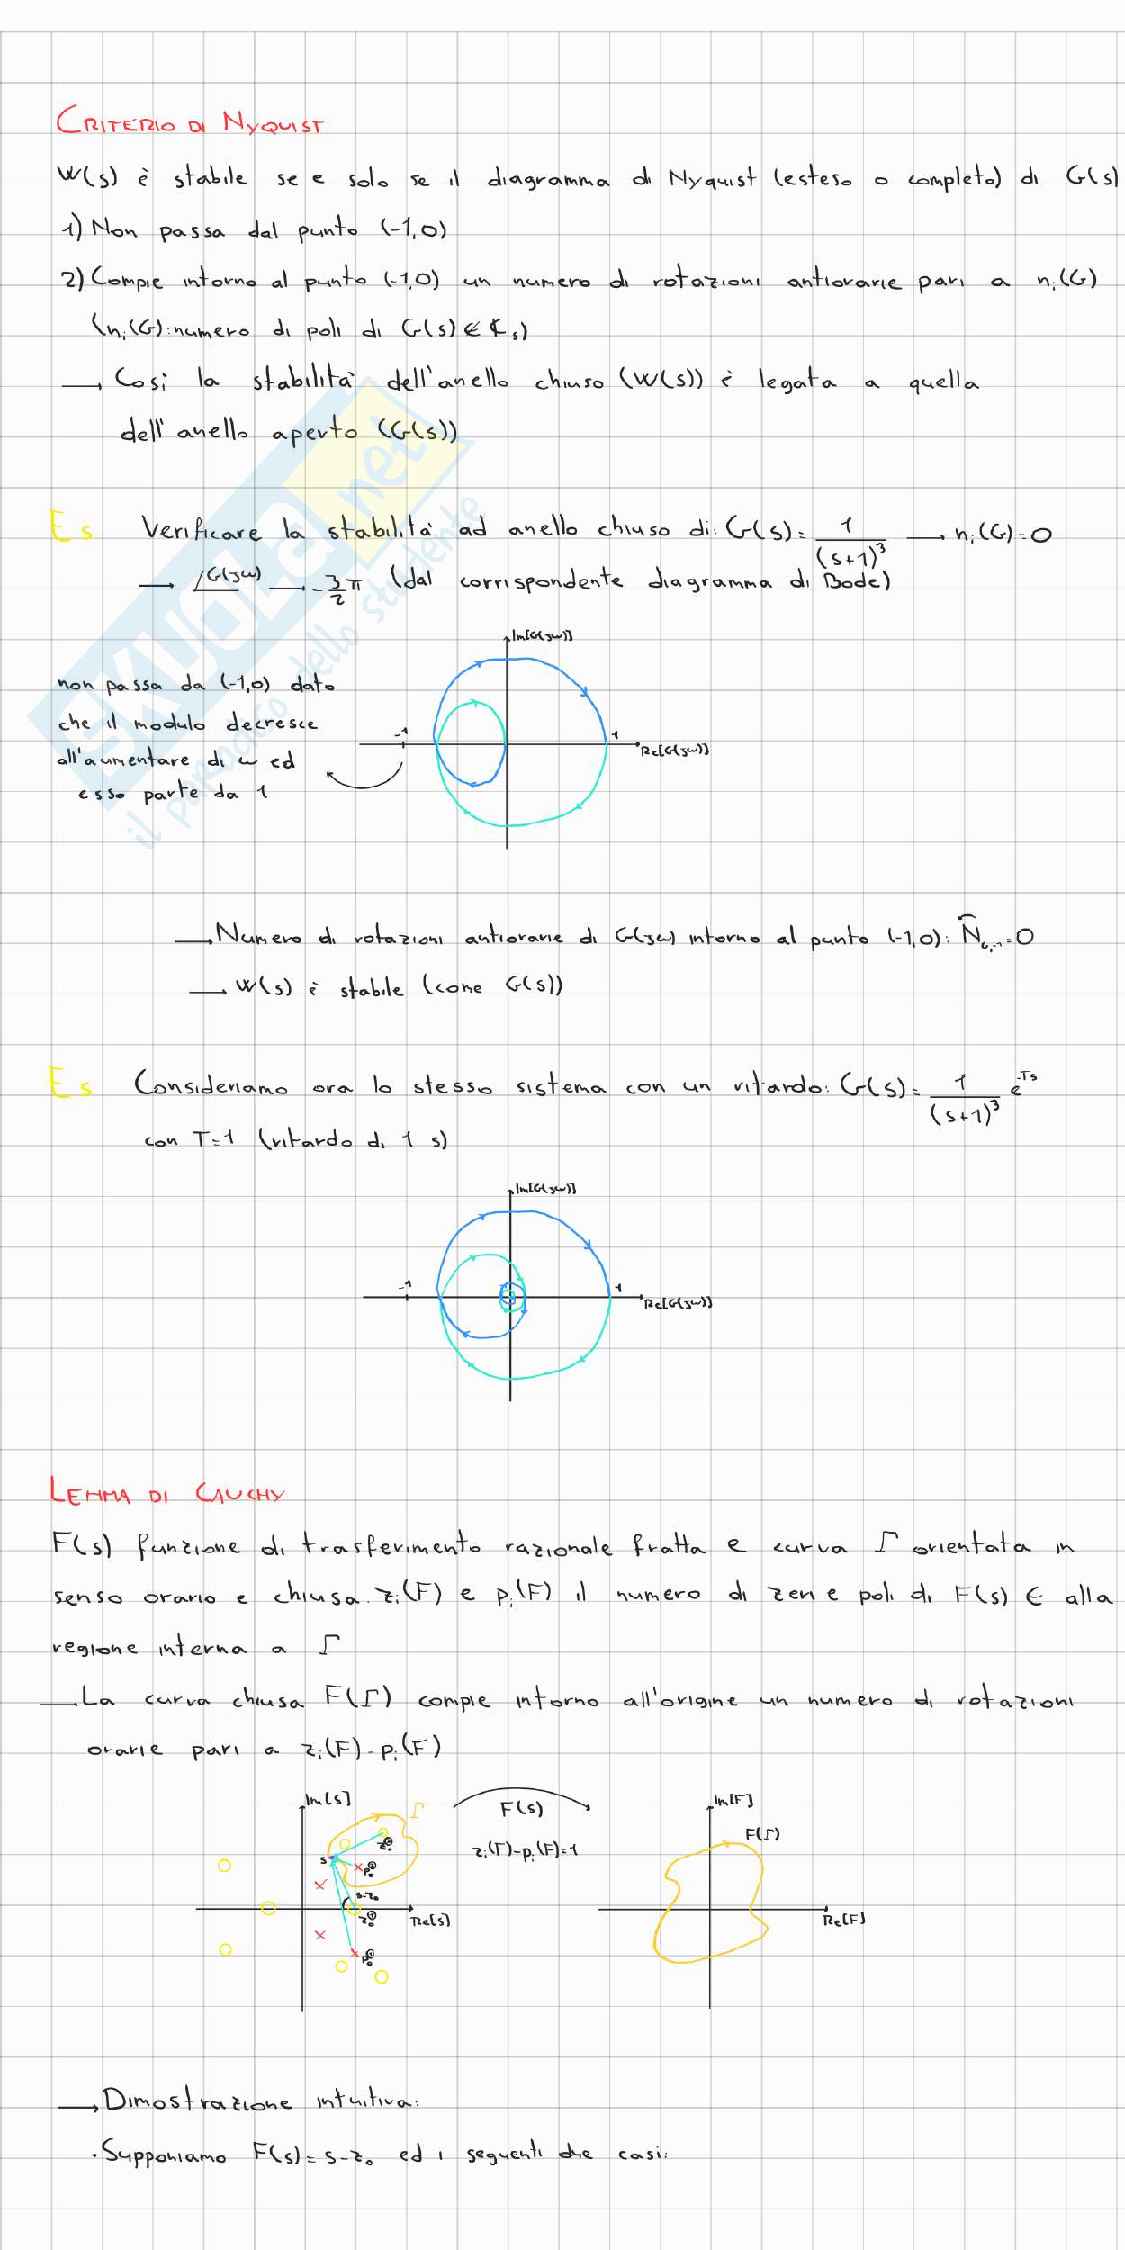 CRITERIO DI NYQUIST
W(s) è stabile se e solo se il diagramma di Nyquist (esteso o completo) di G(s)
1) Non passa dal punto (-1,0)
2) Compie intorno al punto (-1,0) un numero di rotazioni antiorarie pari a nᵢ(G)
(nᵢ(G): numero di poli di G(s) ∉ ℂₛ)
→ Così la stabilità dell'anello chiuso (W(s)) è legata a quella
dell'anello aperto (G(s))
Es Verificare la stabilità ad anello chiuso di: G(s) = 1/(s+1)³ → nᵢ(G)=0
→ ∠G(jω) → -3/2 π (dal corrispondente diagramma di Bode)
Im[G(jω)]
non passa da (-1,0) dato
che il modulo decresce
all'aumentare di ω ed
esso parte da 1
-1
1
Re[G(jω)]
→ Numero di rotazioni antiorarie di G(jω) intorno al punto (-1,0): N̂=0
→ W(s) è stabile (come G(s))
Es Consideriamo ora lo stesso sistema con un ritardo: G(s) = 1/(s+1)³ e^-Ts
con T=1 (ritardo di 1 s)
Im[G(jω)]
-1
1
Re[G(jω)]
LEMMA DI CAUCHY
F(s) funzione di trasferimento razionale fratta e curva Γ orientata in
senso orario e chiusa. zᵢ(F) e pᵢ(F) il numero di zeri e poli di F(s) ∈ alla
regione interna a Γ
→ La curva chiusa F(Γ) compie intorno all'origine un numero di rotazioni
orarie pari a zᵢ(F)-pᵢ(F)
Im[s]
Γ
F(s)
zᵢ(F)-pᵢ(F)=1
s
s-z₀
Re[s]
Im[F]
F(Γ)
Re[F]
→ Dimostrazione intuitiva:
· Supponiamo F(s)= s-z₀ ed i seguenti due casi:
SKUOLA.net
il paradiso dello studente